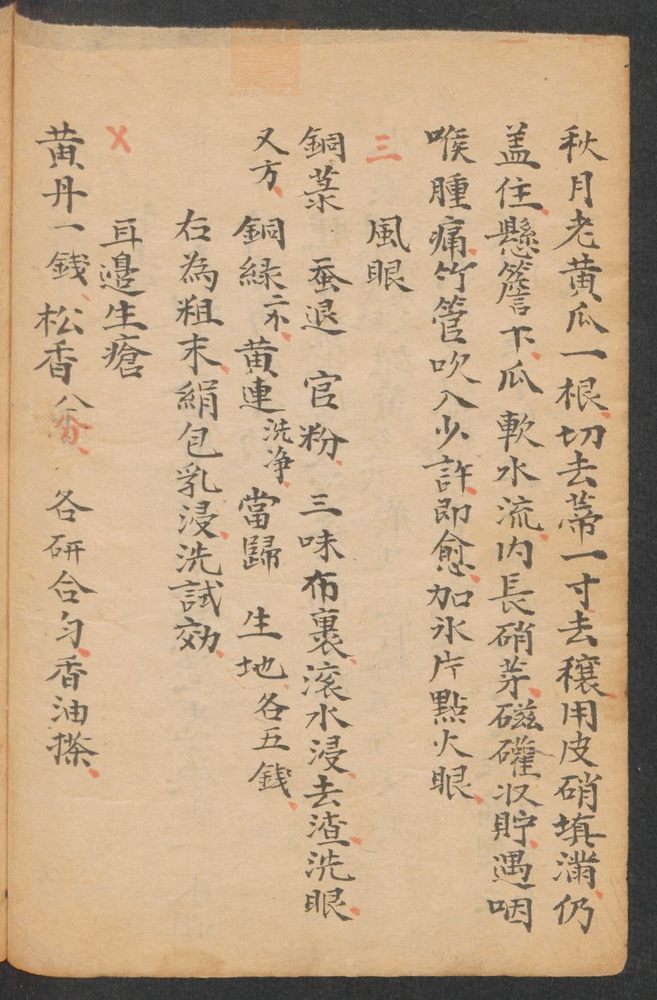 秋月老黄瓜一根切去蒂一寸去穰用皮硝填滿仍
盖住懸簷下瓜軟水流内長硝芽磁礶収貯遇咽
喉腫痛竹管吹入少許即愈加氷片點火眼
三 風眼
銅菉 蚕退 官粉 三味布裹滚水浸去渣洗眼
又方 銅緑 黄連洗净 當歸 生地各五錢
右為粗末絹包乳浸洗試効
X 耳邉生瘡
黄丹一錢 松香八分 各研合匀香油搽